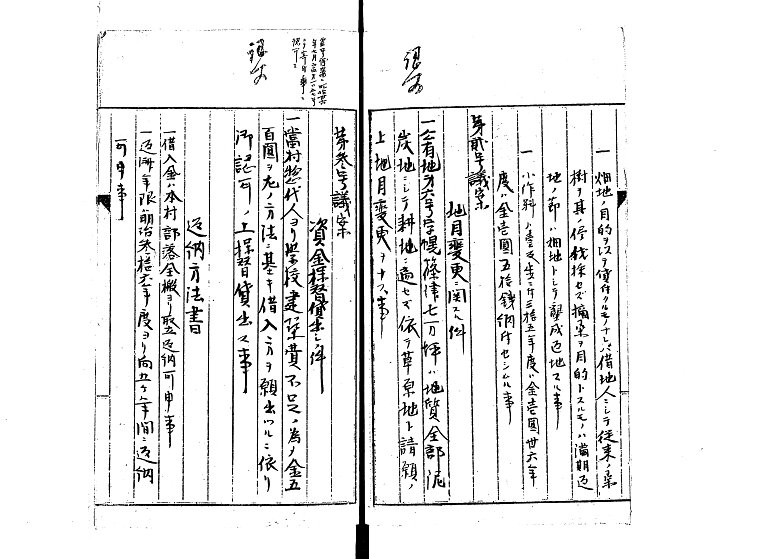 一 畑地ノ目的ヲ以テ貸付タルモノナレバ借地人ニシテ従来ノ桑
樹ヲ其ノ侭伐採セズ摘桑ヲ目的トスルモノハ満期返
地ノ節ハ畑地トシテ墾成返地スル事
一 小作料ハ壹反歩ニ付三拾五年度ハ金壱圓卅六年
度ハ金壱圓五拾銭納付セシムル事
第貳号議案
地目変更ニ関スル件
一公有地第六号字幌篠津七万坪ハ地質全部泥
炭地ニシテ耕地ニ適セズ依テ草原地ト請願ノ
上地目変更ヲナス事
第参号議案
資金操替貸出シノ件
一當村惣代人ヨリ学校建築費不足ノ為メ金五
百圓ヲ左ノ方法ニ基キ借入方ヲ願出ツルニ依リ
御認可ノ上操替貸出ス事
返納方法書
一借入金ハ本村部落全般ヨリ取立返納可申事
一返済年限明治参拾六年度ヨリ向五ヶ年間ニ返納
可申事